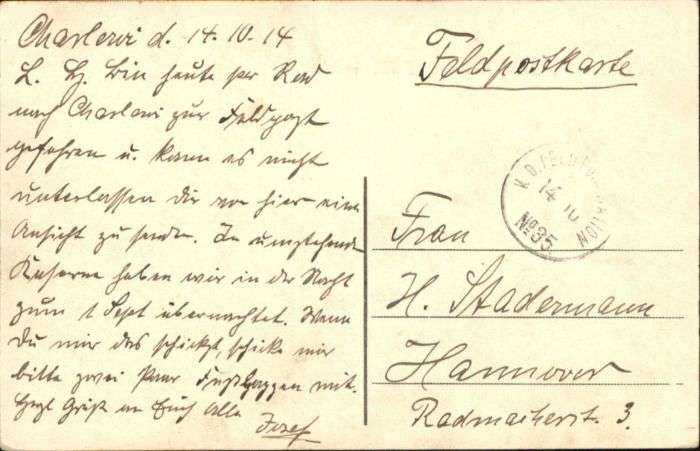 Charlevi d. 14.10.14
L. H. Bin heute per Rad
nach Charlevi zur Feldpost
gefahren u. kann es nicht
unterlassen dir von hier eine
Ansicht zu senden. In umstehender
Kaserne haben wir in der Nacht
zum 1 Sept übernachtet. Wenn
du mir das schickst, schicke mir
bitte zwei Paar Fußlappen mit.
Herzl Grüße an Euch Alle
Josef
Feldpostkarte
K. D. FELD
14 10
No 35
Frau
H. Stadermann
Hannover
Radmacherst. 3.